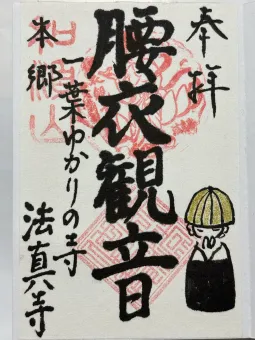 奉拝
腰衣観音
本郷
一葉ゆかりの寺
法真寺